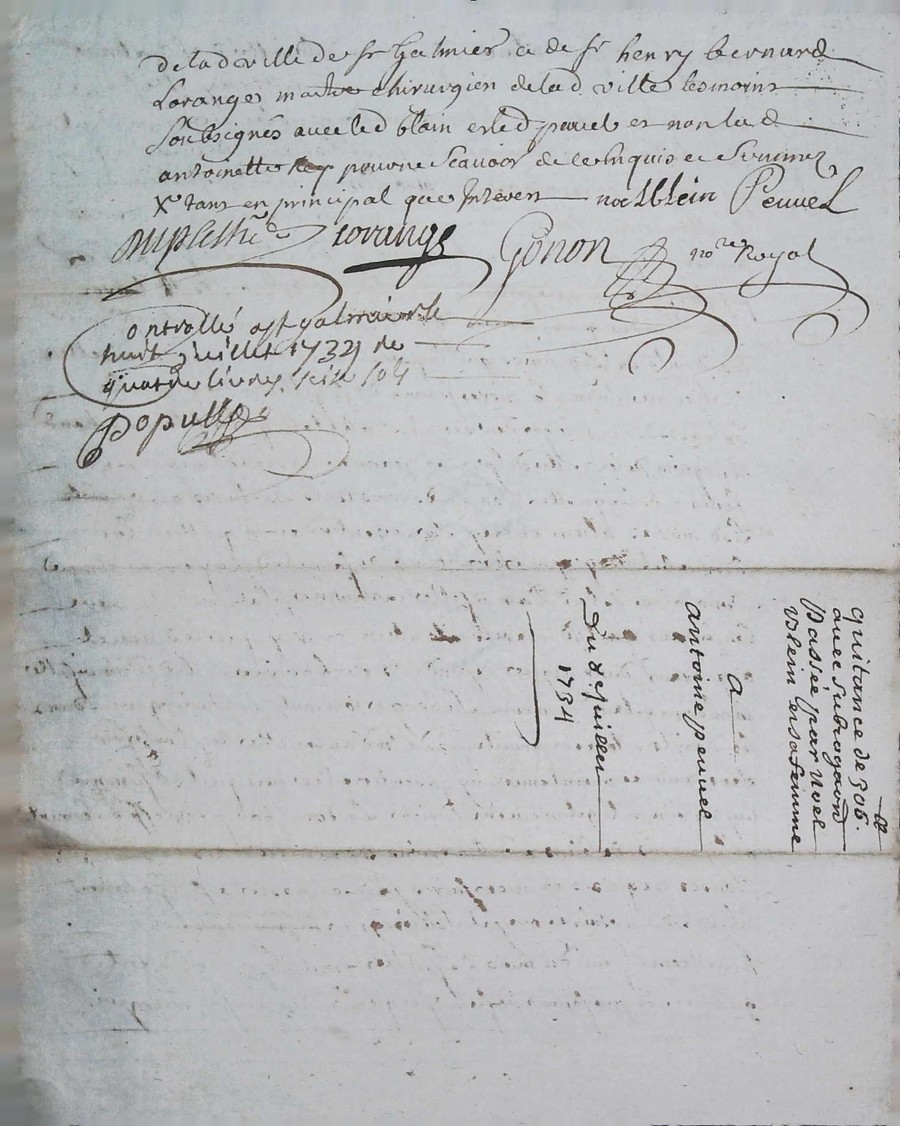 de lad ville de St Galmier et de sr henry bernard
Lorange maitre chirurgien de lad ville tesmoins
soubsignés avec led blein et led peuvel et non lad
antoinette pour ne scavoir de ce enquis et sommez
X tant en principal que Interest noel blein Peuvel
Lorange Gonon nore Royal
Controllé a St galmier le
huit juillet 1734 Re
quatre livres seize sols
Populle
quitance de 306. ll
avec subrogaon
Passée par Noel
blein et sa femme
A
antoine peuvel
Du 8e juillet
1734